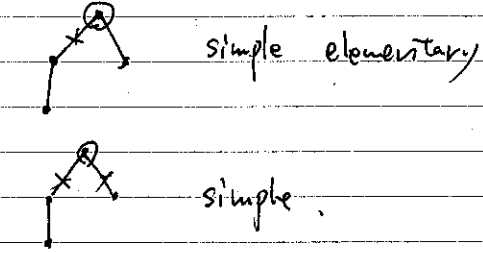 simple elementary
simple.